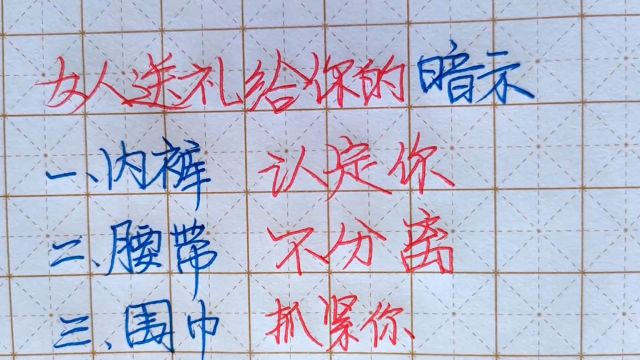 女人送礼给你的暗示
一、内裤 认定你
二、腰带 不分离
三、围巾 抓紧你